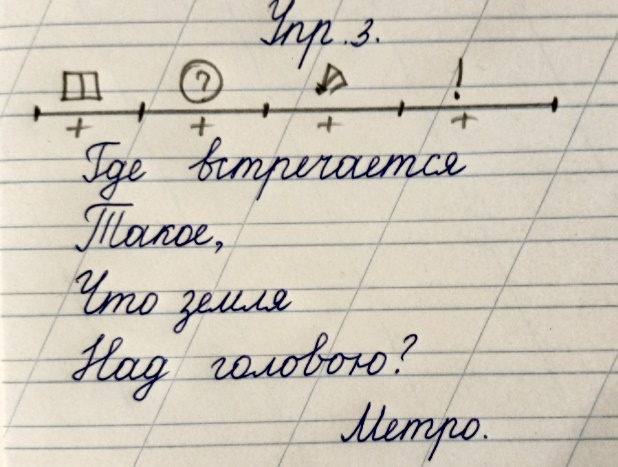 Упр. 3.
?
!
+ + + +
Где встречается
Такое,
Что земля
Над головою?
Метро.